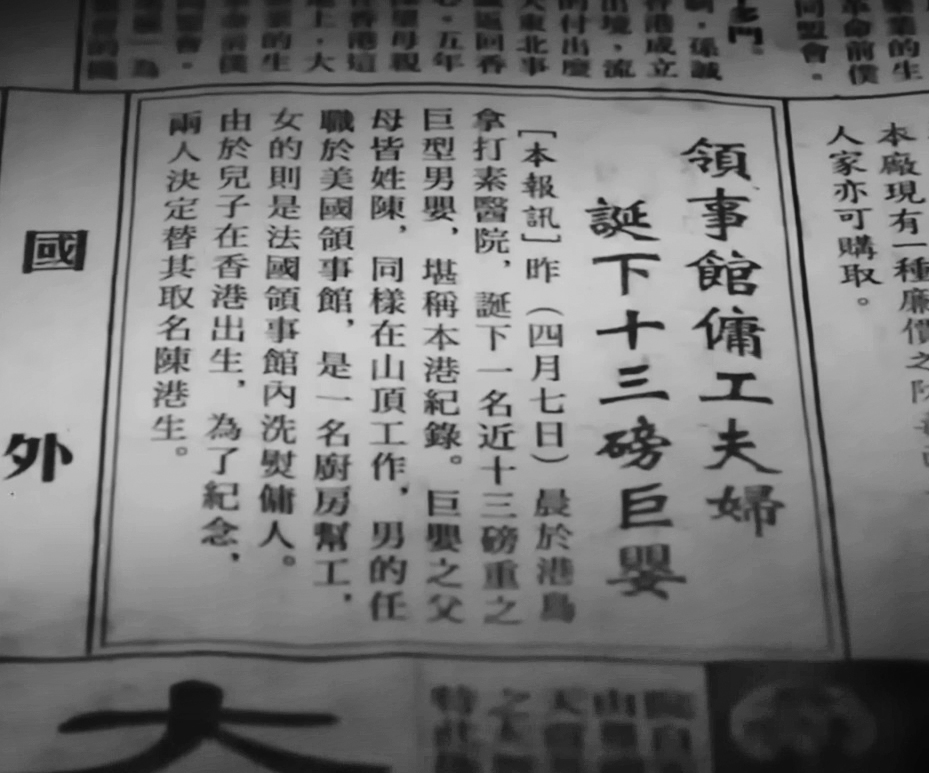 領事館傭工夫婦
誕下十三磅巨嬰
[本報訊]昨（四月七日）晨於港島
拿打素醫院，誕下一名近十三磅重之
巨型男嬰，堪稱本港紀錄。巨嬰之父
母皆姓陳，同樣在山頂工作，男的任
職於美國領事館，是一名廚房幫工，
女的則是法國領事館內洗熨傭人。
由於兒子在香港出生，為了紀念，
兩人決定替其取名陳港生。
本廠現有一種廉價之
人家亦可購取。
業的生
革命前僕
同盟會。
國外
大